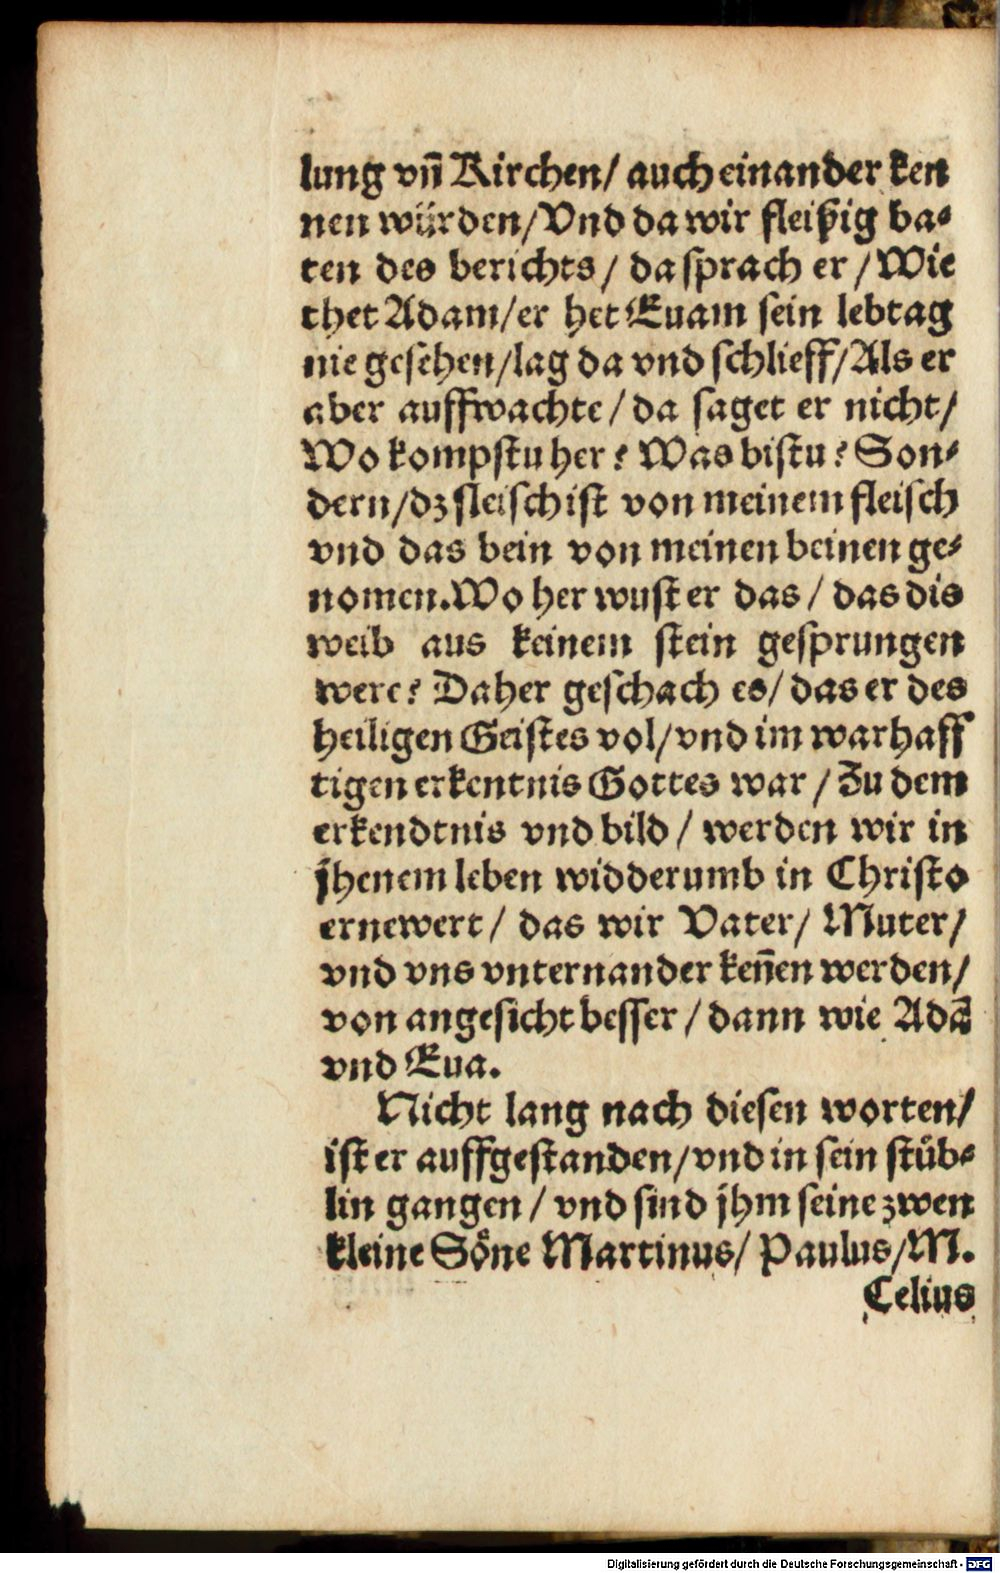 lung vñ Kirchen/ auch einander ken
nen würden/Vnd da wir fleißig ba-
ten des berichts/ da sprach er/Wie
thet Adam/er het Euam sein lebtag
nie gesehen/lag da vnd schlieff/Als er
aber auffwachte/ da saget er nicht/
Wo kompstu her? Was bistu? Son-
dern/dz fleisch ist von meinem fleisch
vnd das bein von meinen beinen ge-
nomen.Wo her wust er das/ das dis
weib aus keinem stein gesprungen
were? Daher geschach es/ das er des
heiligen Geistes vol/vnd im warhaff
tigen erkentnis Gottes war/ Zu dem
erkendtnis vnd bild/ werden wir in
jhenem leben widderumb in Christo
ernewert/ das wir Vater/ Muter/
vnd vns vnternander keñen werden/
von angesicht besser/ dann wie Adã
vnd Eua.
Nicht lang nach diesen worten/
ist er auffgestanden/vnd in sein stüb-
lin gangen/ vnd sind jhm seine zwen
kleine Söne Martinus/ Paulus/M.
Celius
Digitalisierung gefördert durch die Deutsche Forschungsgemeinschaft - DFG